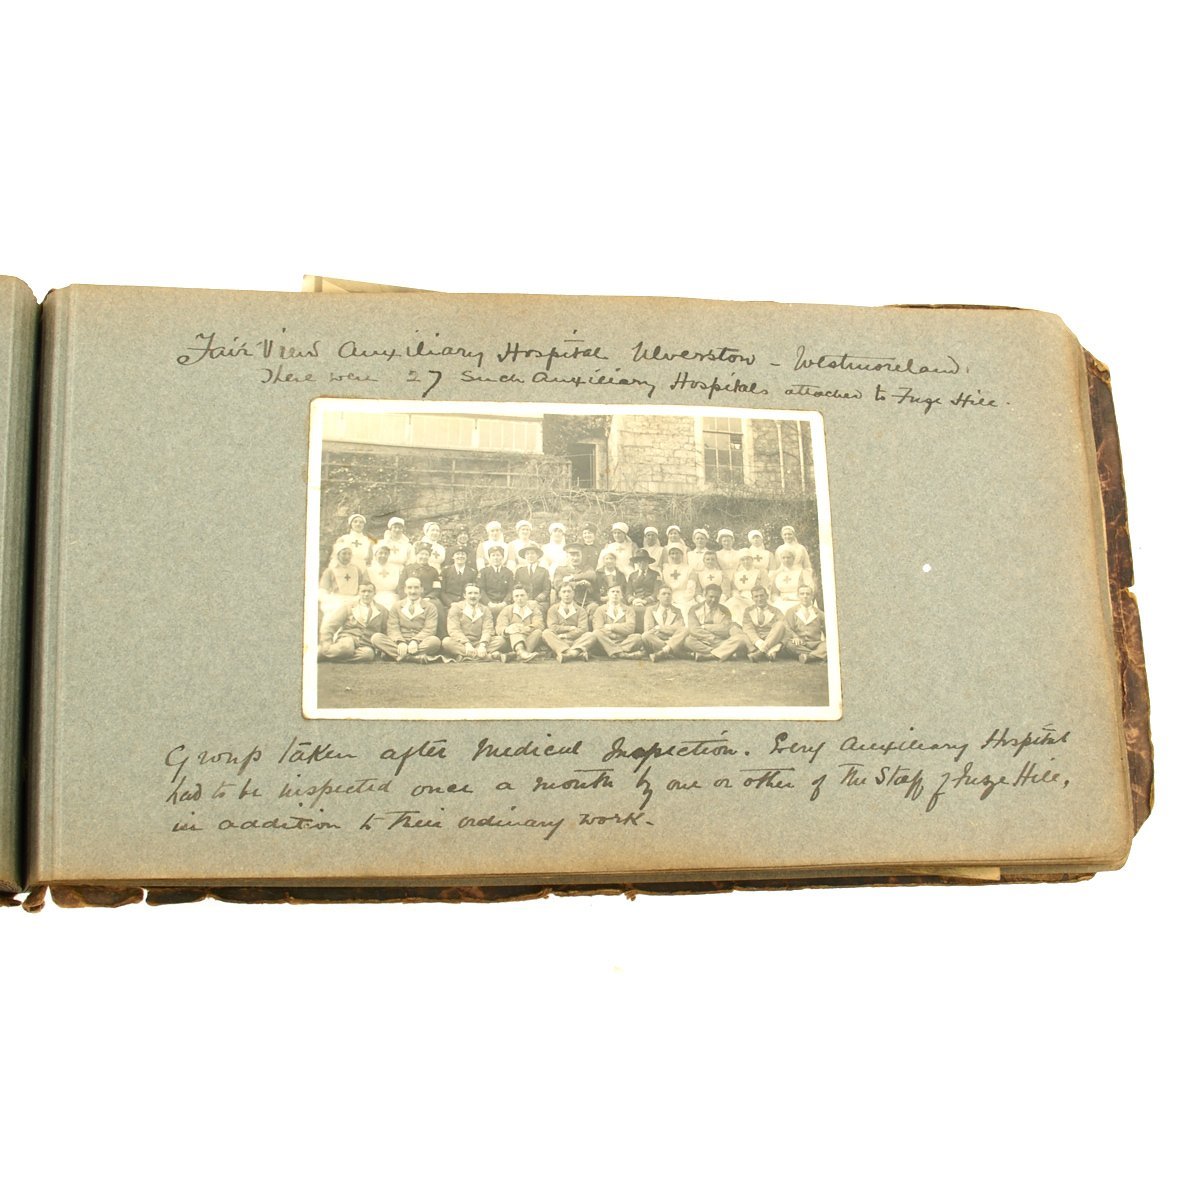 Fair View Auxiliary Hospital Ulverston - Westmoreland.
There were 27 such Auxiliary Hospitals attached to Fuze Hill.
Group taken after Medical Inspection. Every Auxiliary Hospital
had to be inspected once a month by one or other of the Staff of Fuze Hill,
in addition to their ordinary work.